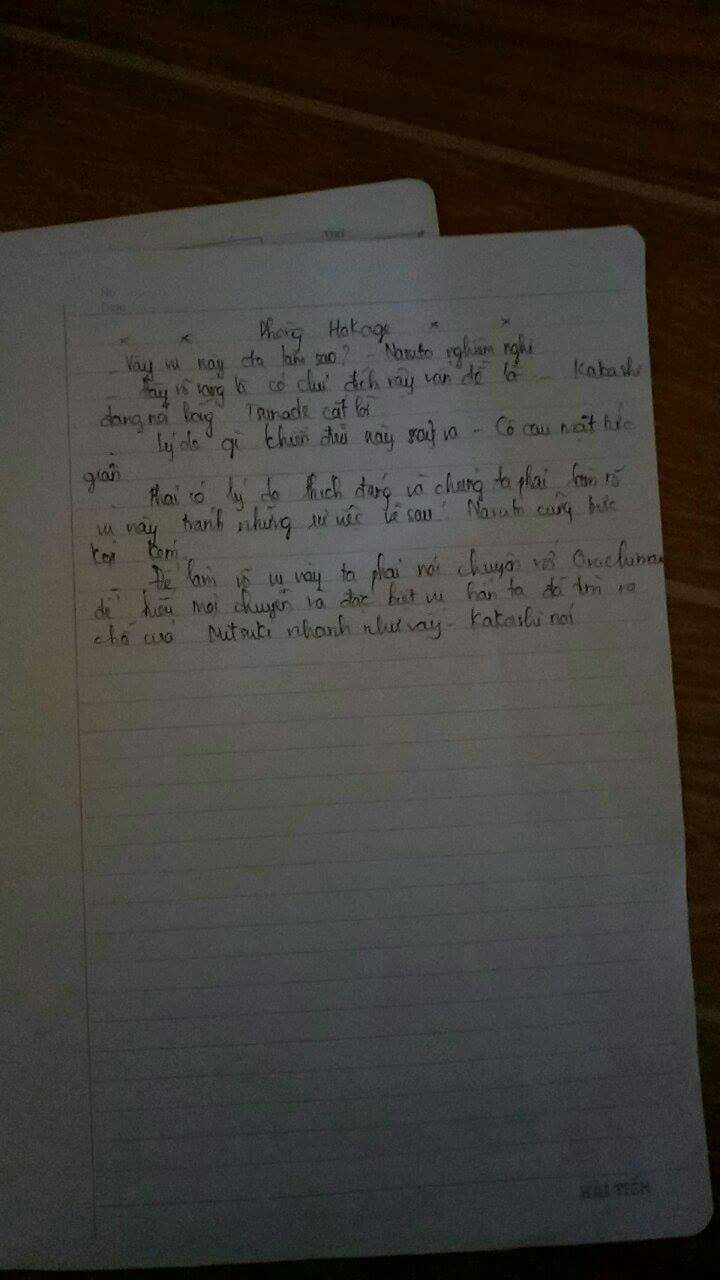 No.
Date
x x Phòng Hokage x x
- Vậy vụ này đã làm sao? - Naruto nghiêm nghị
- rõ ràng là có chủ đích vậy vấn đề là - Kakashi
đang nói bỗng Tsunade cắt lời
lý do gì khiến này xảy ra - Cô cau mặt tức
giận
Phải có lý do thích đáng và chúng ta phải làm rõ
vụ này tránh những sự việc về sau! Naruto cũng bức
kém
Để làm rõ vụ này ta phải nói chuyện với Orochimaru
để hiểu mọi chuyện và đặc biệt vụ hắn ta đã tìm ra
chỗ của Mitsuki nhanh như vậy - Kakashi nói
HẢI TIẾN